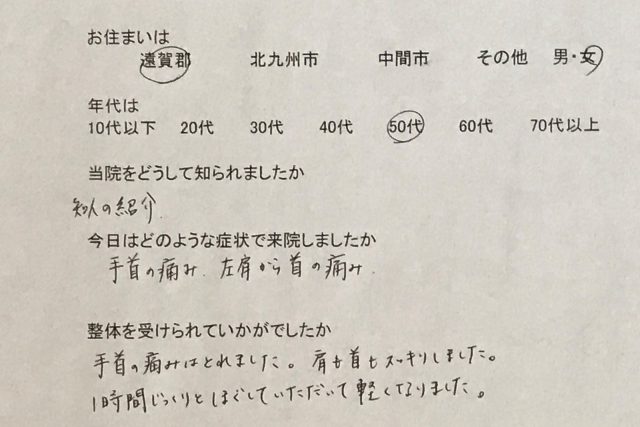 お住まいは
遠賀郡 北九州市 中間市 その他 男・女
年代は
10代以下 20代 30代 40代 50代 60代 70代以上
当院をどうして知られましたか
知人の紹介.
今日はどのような症状で来院しましたか
手首の痛み. 左肩から首の痛み.
整体を受けられていかがでしたか
手首の痛みはとれました。肩も首もスッキリしました。
1時間じっくりとほぐしていただいて軽くなりました。